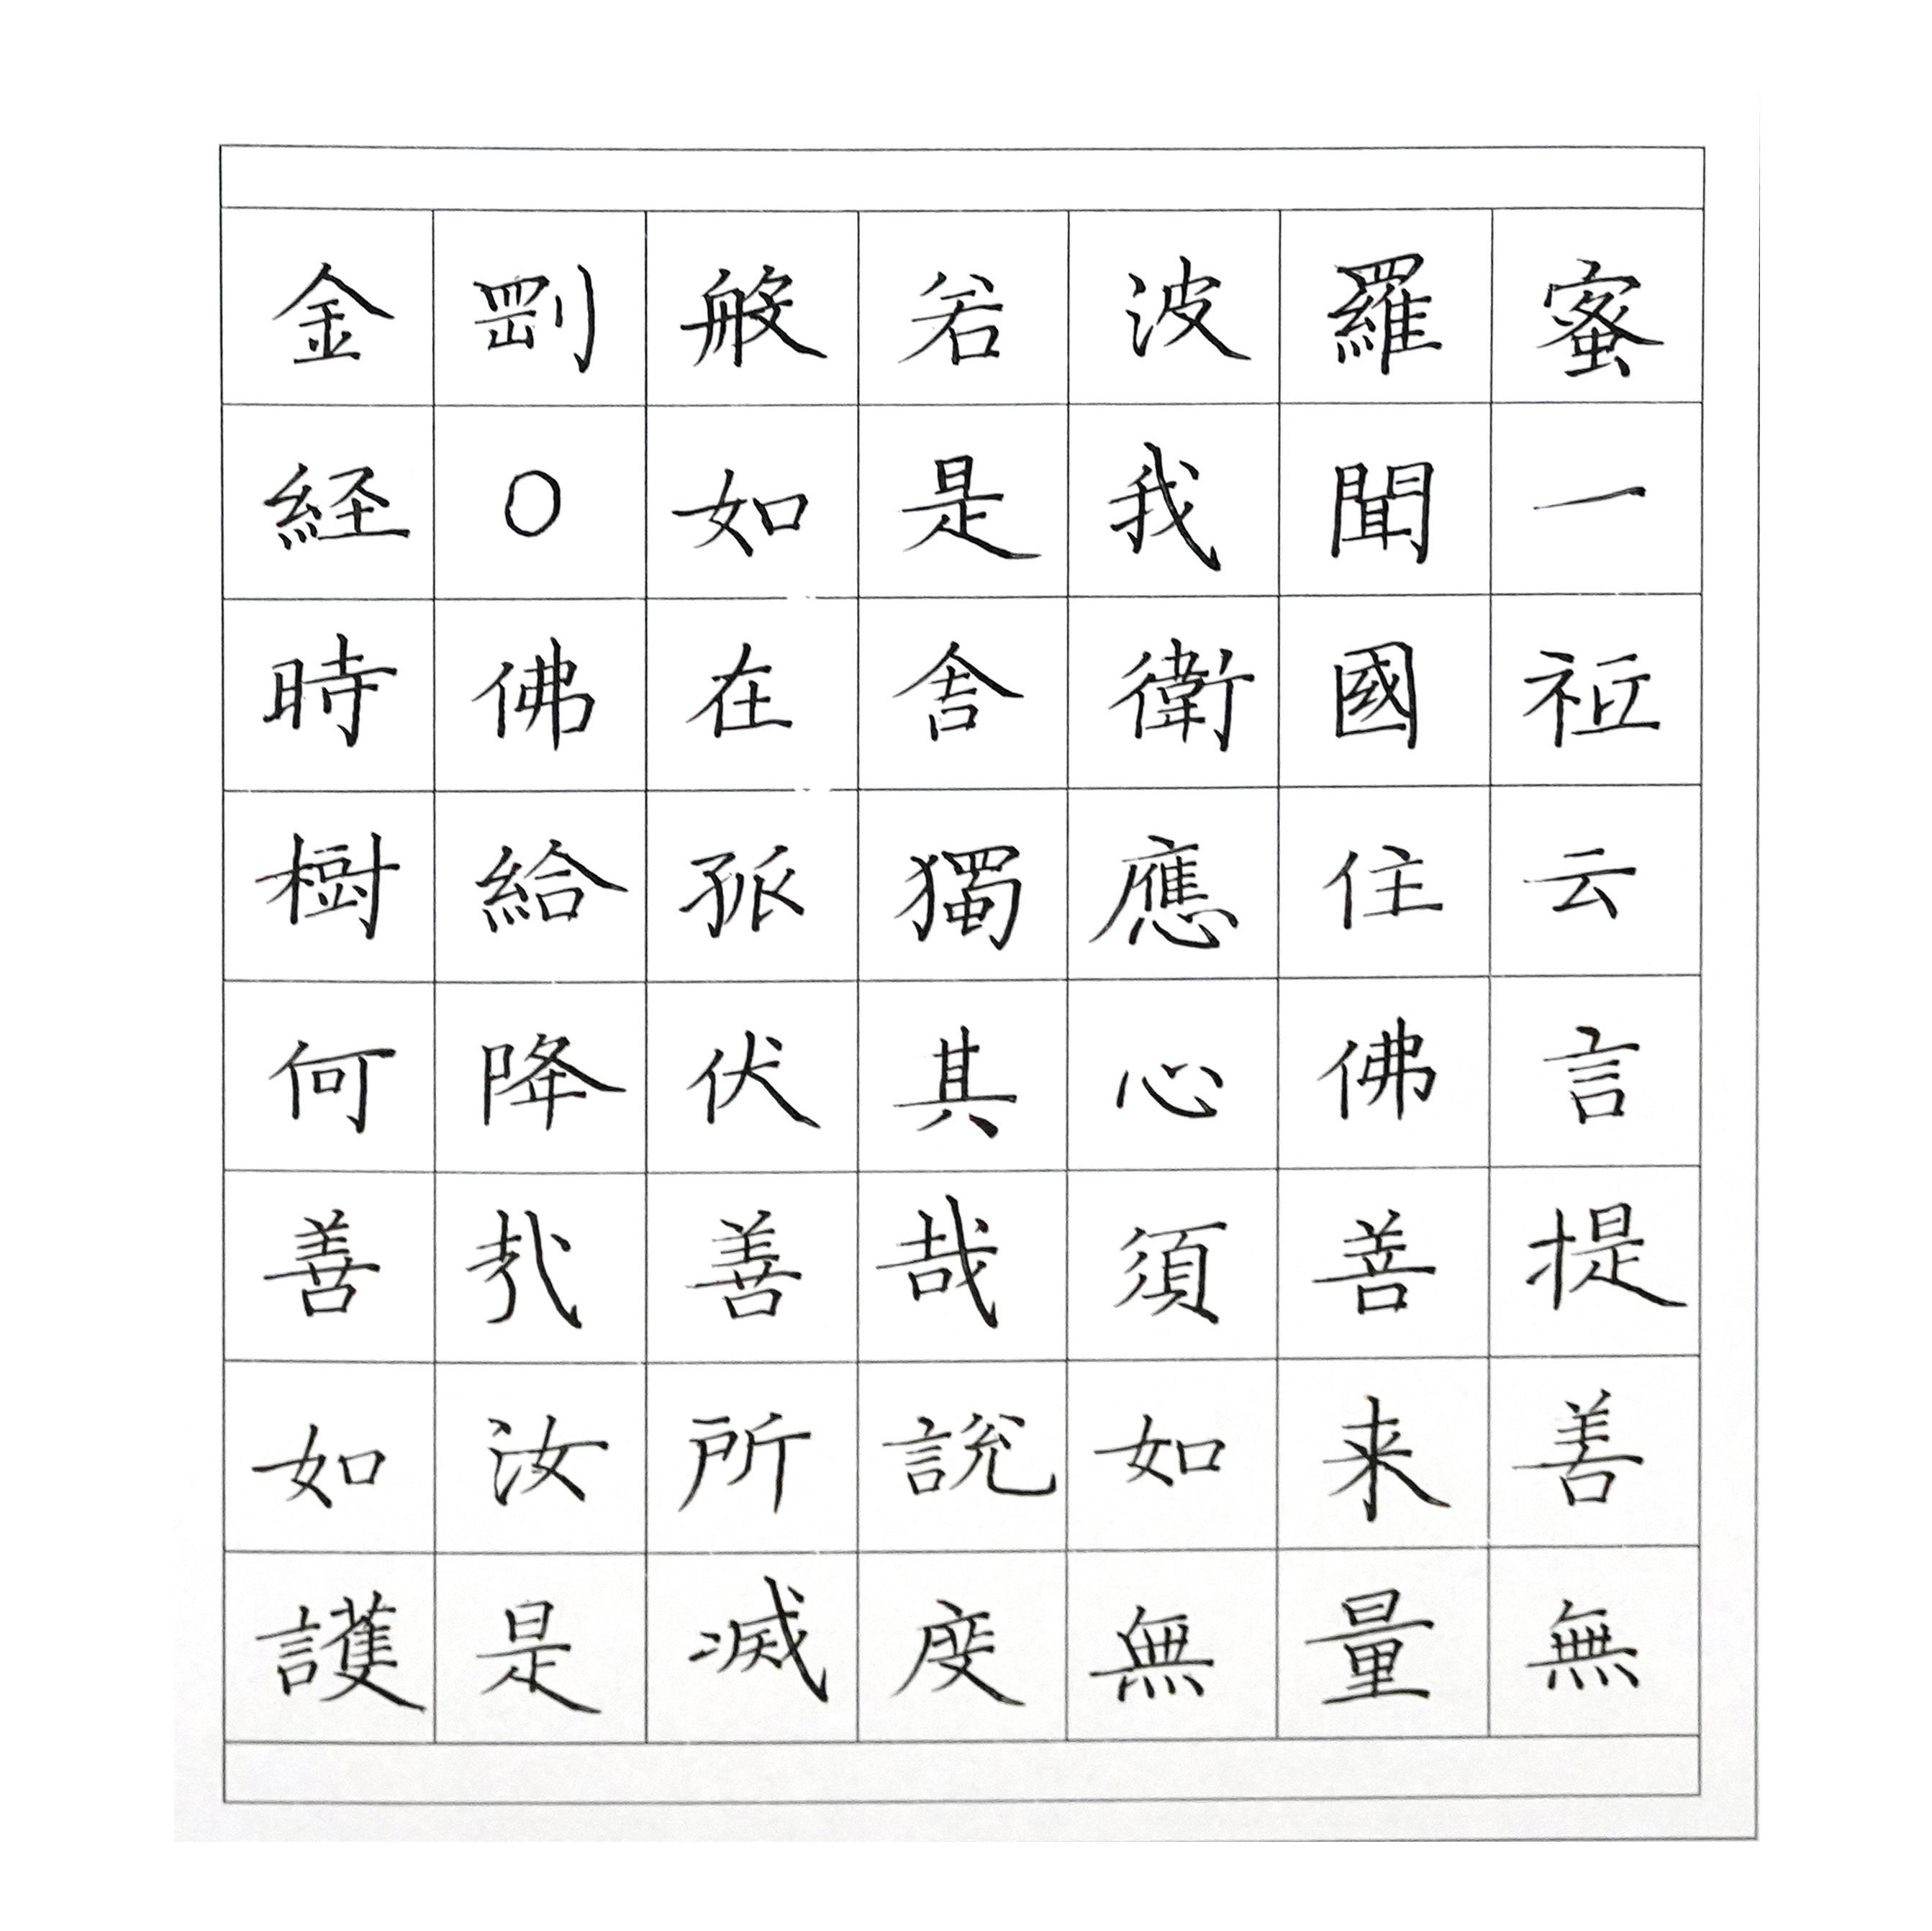 金剛般若波羅蜜
経〇如是我聞一
時佛在舎衛國祇
樹給孤獨應住云
何降伏其心佛言
善哉善哉須菩提
如汝所說如来善
護是滅度無量無